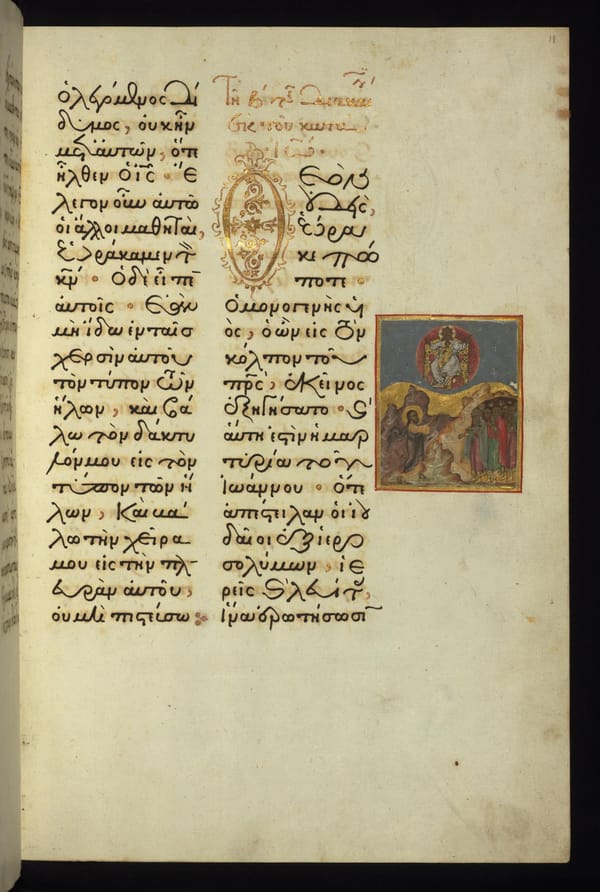 11
ὁ λεγόμενος Δί
δυμος, οὐκ ἦν
μετ' αὐτῶν, ὅτε
ἦλθεν ὁ ις̄ · Ἔ
λεγον οὖν αὐτῷ
οἱ ἄλλοι μαθηταί,
Ἑωράκαμεν τὸν
κν̄ · Ὁ δὲ εἶπεν
αὐτοῖς · Ἐὰν
μὴ ἴδω ἐν ταῖς
χερσὶν αὐτοῦ
τὸν τύπον τῶν
ἥλων, καὶ βά
λω τὸν δάκτυ
λόν μου εἰς τὸν
τύπον τῶν ἥ
λων, Καὶ βά
λω τὴν χεῖρα
μου εἰς τὴν πλ
ευρὰν αὐτοῦ,
οὐ μὴ πιστεύσω
Τῇ βʹ τῆς
ἐκ τοῦ κατὰ
Ἰω
Θεὸν οὐ
δεὶς,
ἑώρα
κε πώ
ποτε ·
Ὁ μονογενὴς υἱ
ὸς, ὁ ὢν εἰς τὸν
κόλπον τοῦ
πρς̄, ἐκεῖνος
ἐξηγήσατο · Καὶ
αὕτη ἐστὶν ἡ μαρ
τυρία τοῦ
Ἰωάννου · ὅτε
ἀπέστειλαν οἱ ἰου
δαῖοι ἐξ ἱερο
σολύμων, ἱε
ρεῖς καὶ λευίτας,
ἵνα ἐρωτήσωσιν